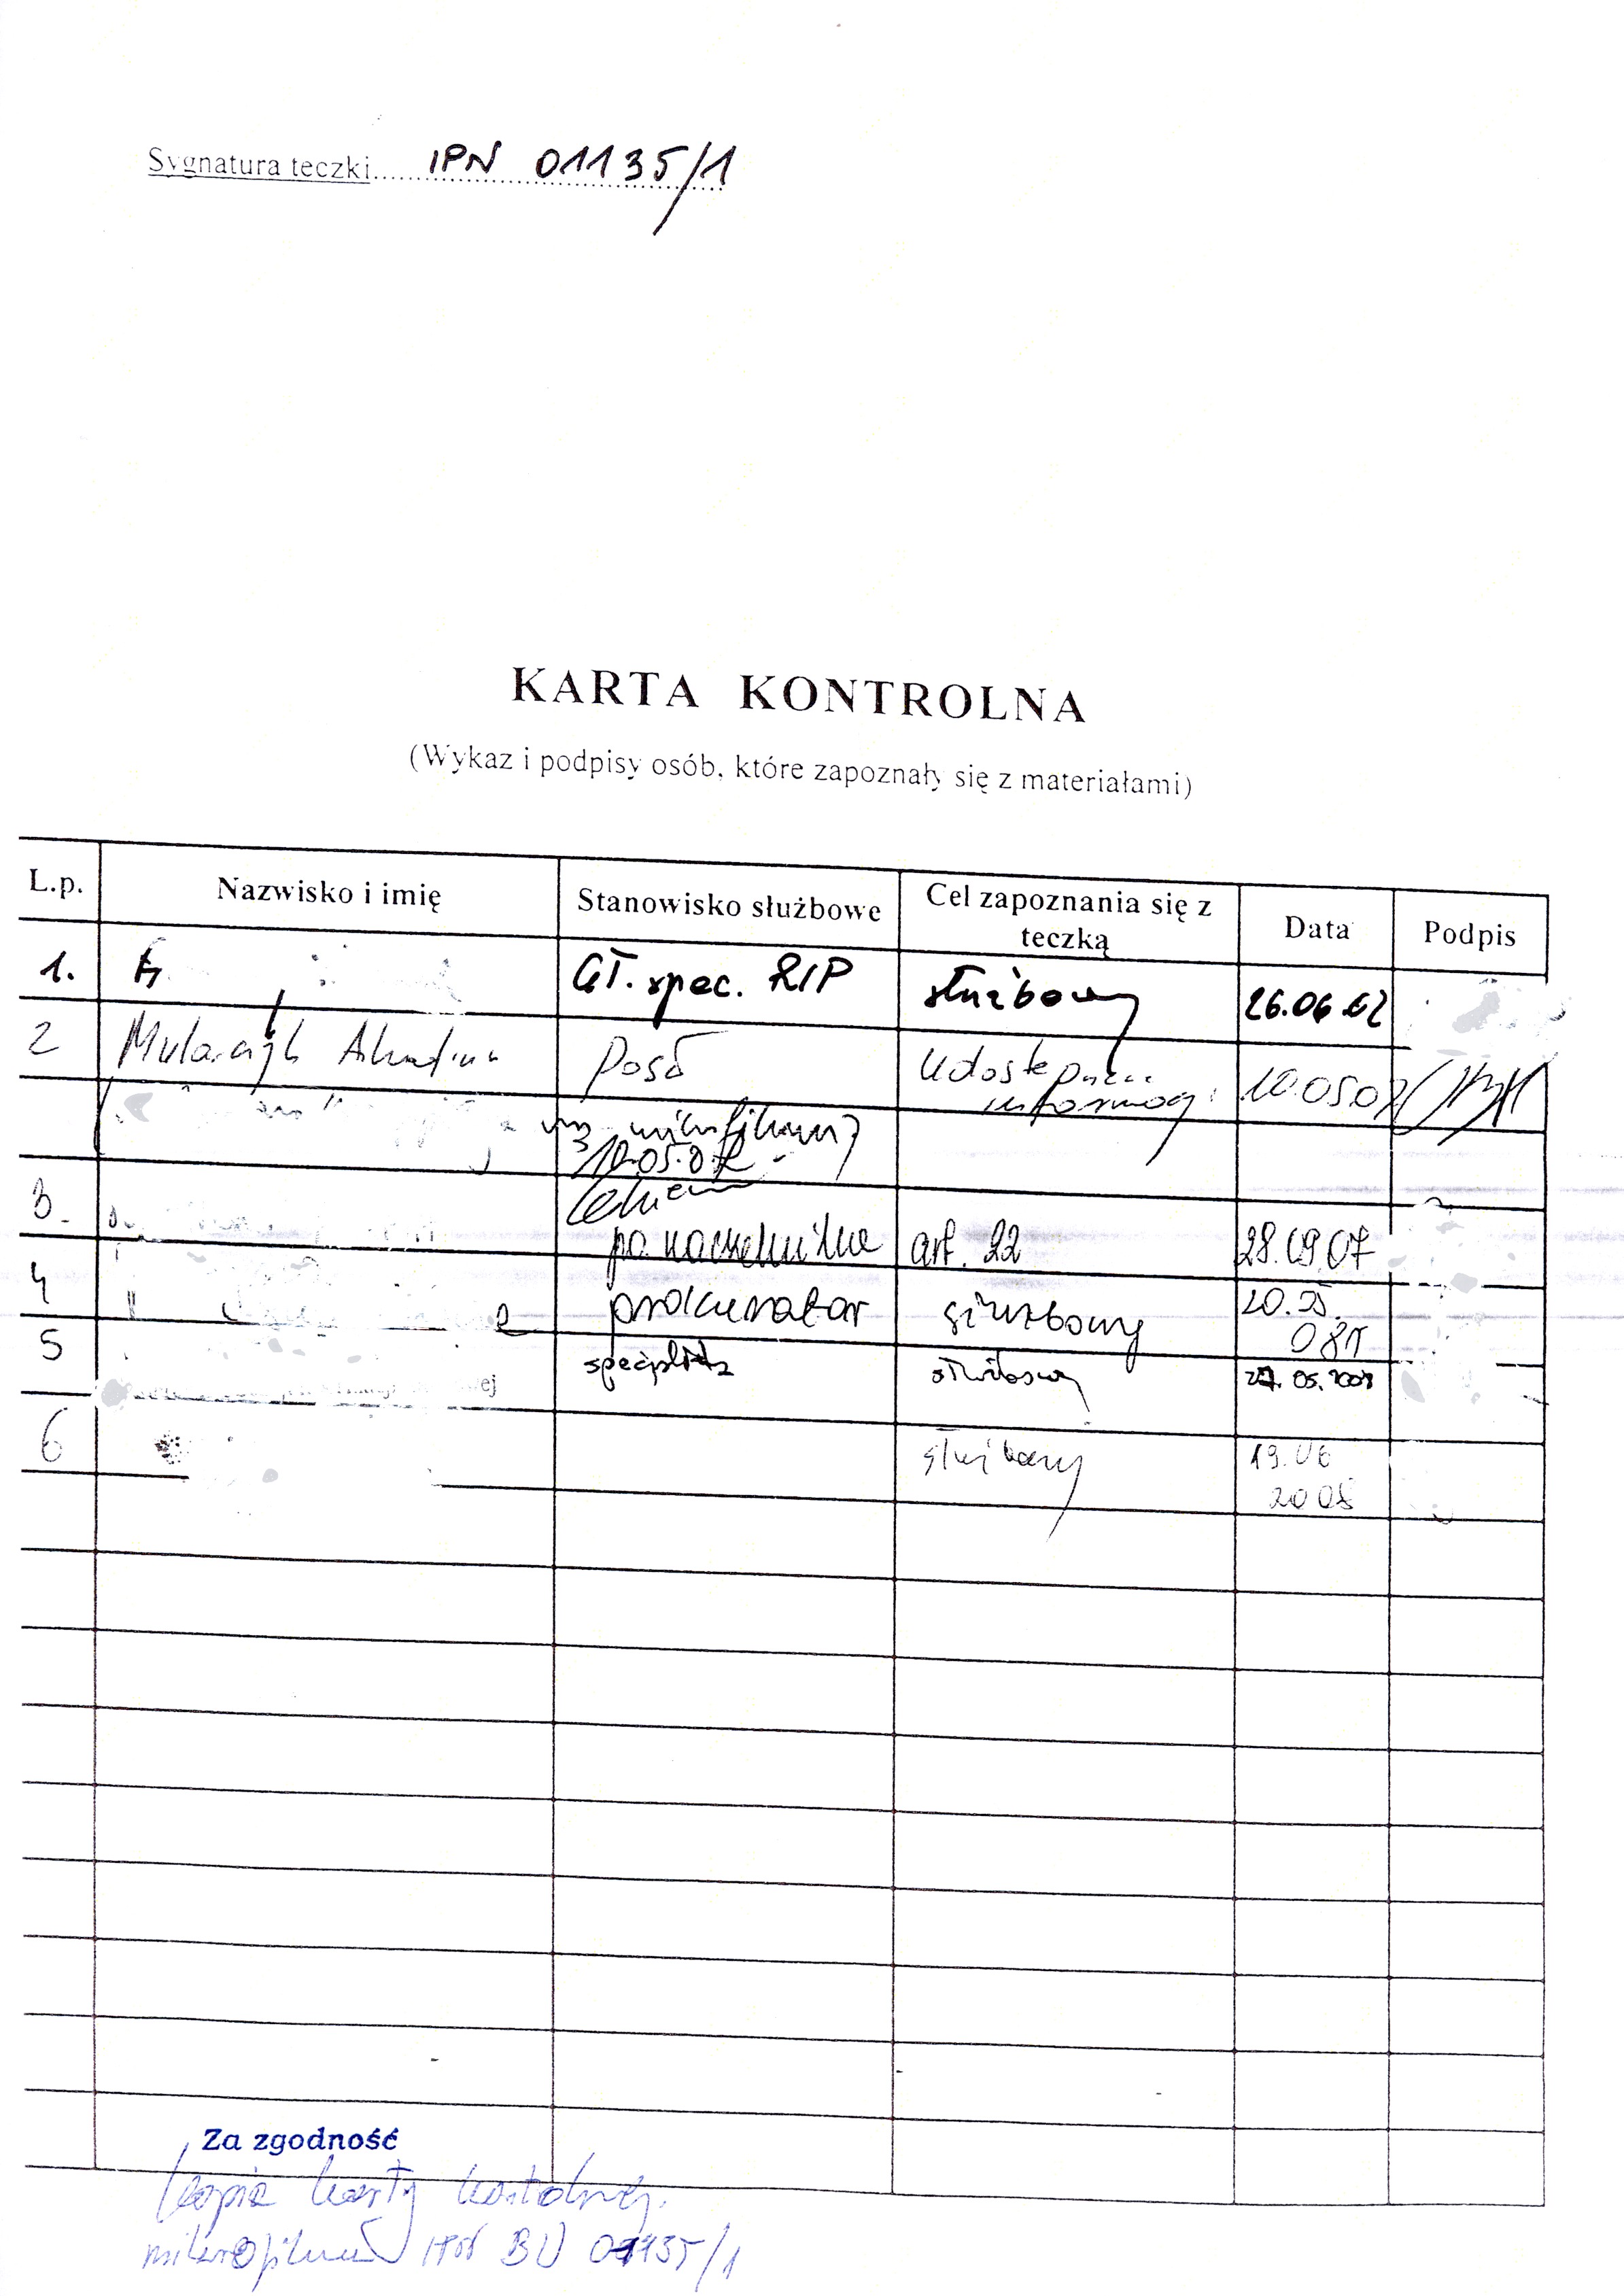 Sygnatura teczki IPN 01135/1
KARTA KONTROLNA
(Wykaz i podpisy osób, które zapoznały się z materiałami)
L.p. Nazwisko i imię Stanowisko służbowe Cel zapoznania się z teczką Data Podpis
1. Gł. spec. RIP służbowy 26.06.02
2 Mularczyk Arkadiusz Poseł 10.05.07
10.05.07
3. p.o. naczelnika art. 22 28.09.07
4 prokurator służbowy 20.05.08r
5 specjalista służbowy 27.05.2008
6 służbowy 19.06 2008
Za zgodność
kopia karty kontrolnej
mikrofilmu IPN BU 01135/1